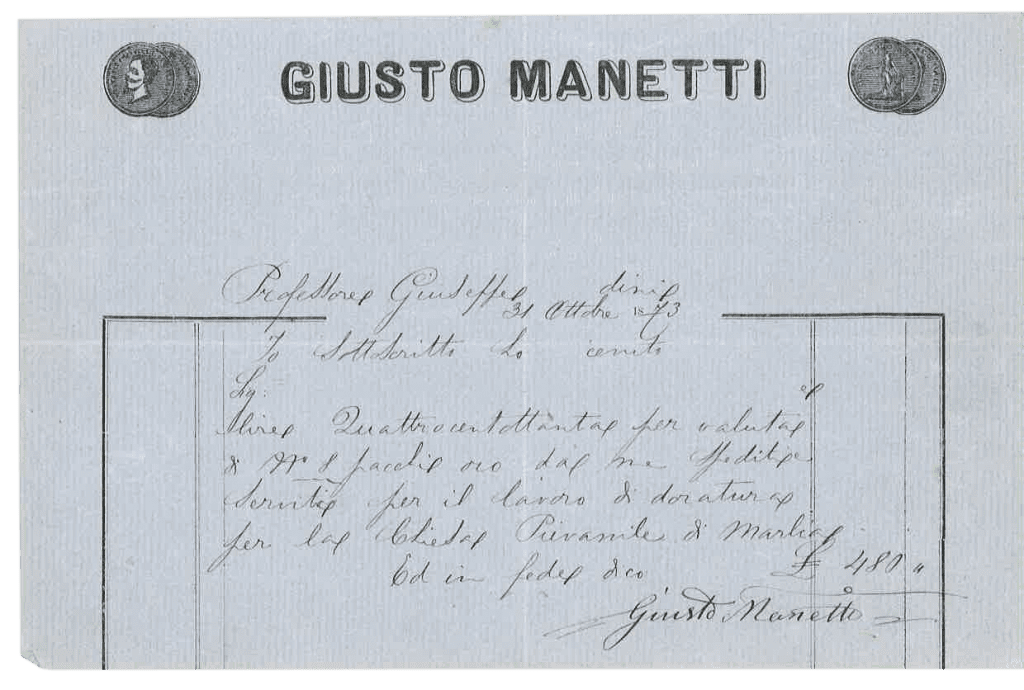 GIUSTO MANETTI
Professore Giuseppe dini
31 Ottbre 1873
Io Sottscritto ho
Sig:
Quattrocentottanta per valuta
di N° 8 pacchi oro da me spediti e
serviti per il lavoro di doratura
per la Chiesa Pievanile di Marlia
£ 480 "
Ed in fede dico
Giusto Manetti